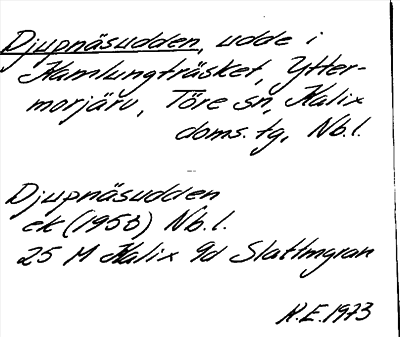 Djupnäsudden, udde i
Kamlungträsket, Ytter-
morjärv, Töre sn, Kalix
doms. tg, Nb.l.
Djupnäsudden
ek (1958) Nb.l.
25 M Kalix 9d Slattmgran
R.E. 1973